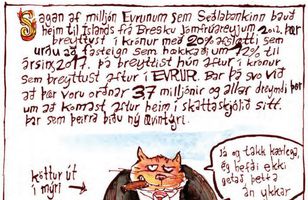 Sagan af milljón Evrunum sem Seðlabankinn bauð
heim til Íslands frá Bresku Jómfrúareyjum 2012. Þar
breyttust í krónur með 20% afslætti sem
urðu að fasteign sem hækkaði um 72% til
ársins 2017. Þá breyttist hún aftur í krónur
sem breyttust aftur í EVRUR. Bar þá svo við
að þær voru orðnar 37 milljónir og allar dreymdi þær
um að komast aftur heim í skattaskjólið sitt.
þar sem þeirra biðu ný ævintýri.
köttur út
í mýri
Já ég takk kærlega,
ég hefði ekki
getað þetta
án ykkar